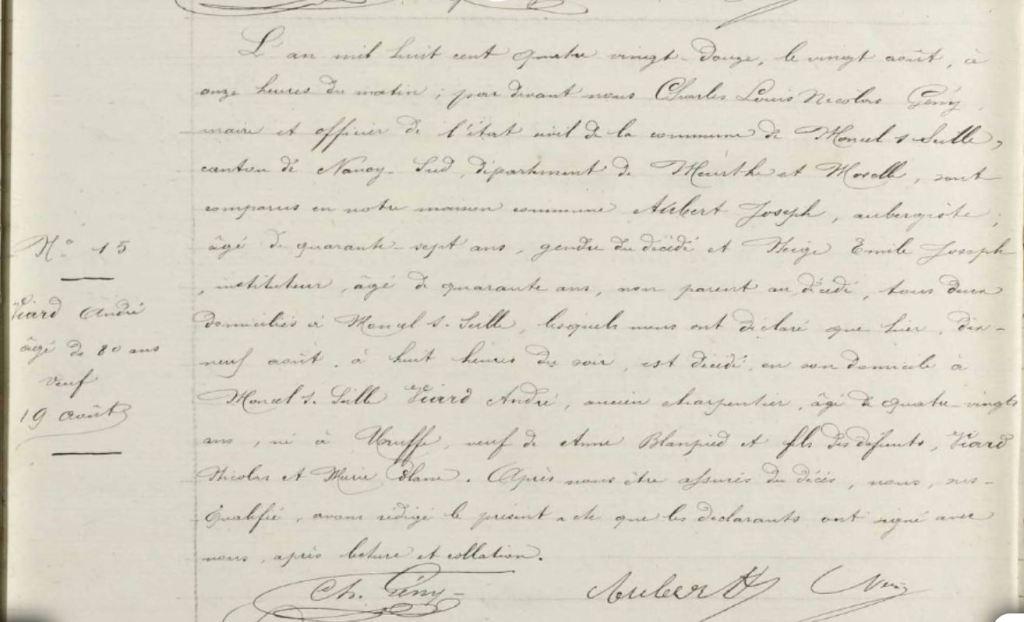 L'an mil huit cent quatre vingt-douze, le vingt août, à
onze heures du matin ; par devant nous Charles Louis Nicolas Gény,
maire et officier de l'état civil de la commune de Moncel s. Seille,
canton de Nancy-Sud, département de Meurthe et Moselle, sont
comparus en notre maison commune Aubert Joseph, aubergiste,
âgé de quarante-sept ans, gendre du décédé et Emile Joseph
, instituteur, âgé de quarante ans, non parent au décédé, tous deux
domiciliés à Moncel s. Seille, lesquels nous ont déclaré que hier, dix-
neuf août, à huit heures du soir, est décédé, en son domicile à
Moncel s. Seille Viard André, ancien charpentier, âgé de quatre-vingts
ans, né à Uruffe, veuf de Anne Blanpied et fils des défunts, Viard
Nicolas et Marie . Après nous être assurés du décès, nous, sus-
qualifié, avons rédigé le présent acte que les déclarants ont signé avec
nous, après lecture et collation.
N° 15
Viard André
âgé de 80 ans
veuf
19 août
Ch. Gény Aubert